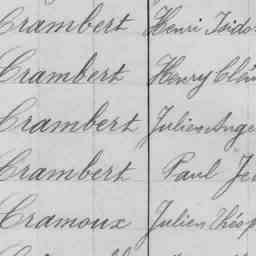 Crambert Henri Isido
Crambert Henry Clém
Crambert Julien Ange
Crambert Paul Je
Cramoux Julien Thésp